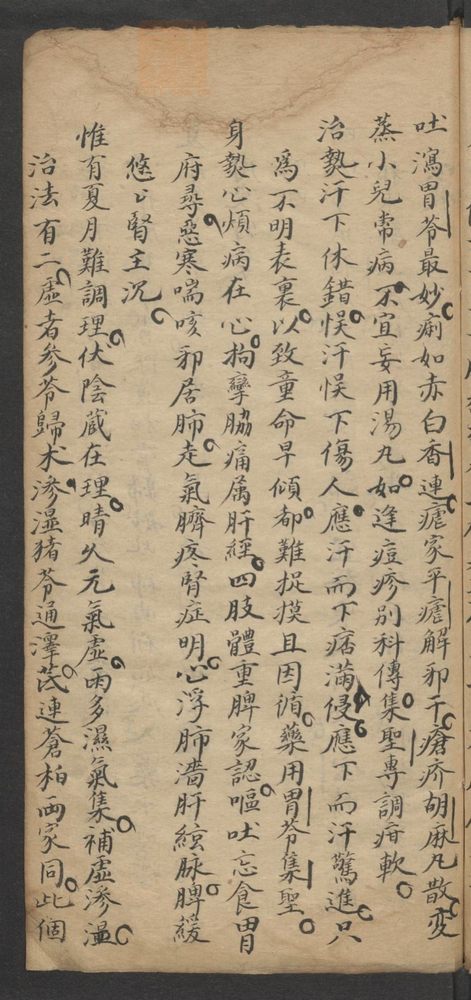 吐瀉胃苓最妙痢如赤白香連瘧家平瘧解邪干瘡疥胡麻凡散变
蒸小兒常病不宜妄用湯丸如逢痘疹別科傳集聖專調疳軟
治熱汗下休錯悮汗悮下傷人應汗而下痞滿侵應下而汗驚進只
為不明表裏以致童命早傾都難捉摸且因循藥用胃苓集聖
身熱心煩病在心拘攣脇痛属肝經四肢體重脾家認嘔吐忘食胃
府尋惡寒喘咳邪居肺走氣臍疼腎症明心浮肺濇肝絃脉脾緩
悠〻腎主沉
惟有夏月難調理伏陰蔵在理晴久元氣虛雨多濕氣集補虛滲濕
治法有二虛者參苓歸术滲湿猪苓通澤芪連蒼柏両家同此個